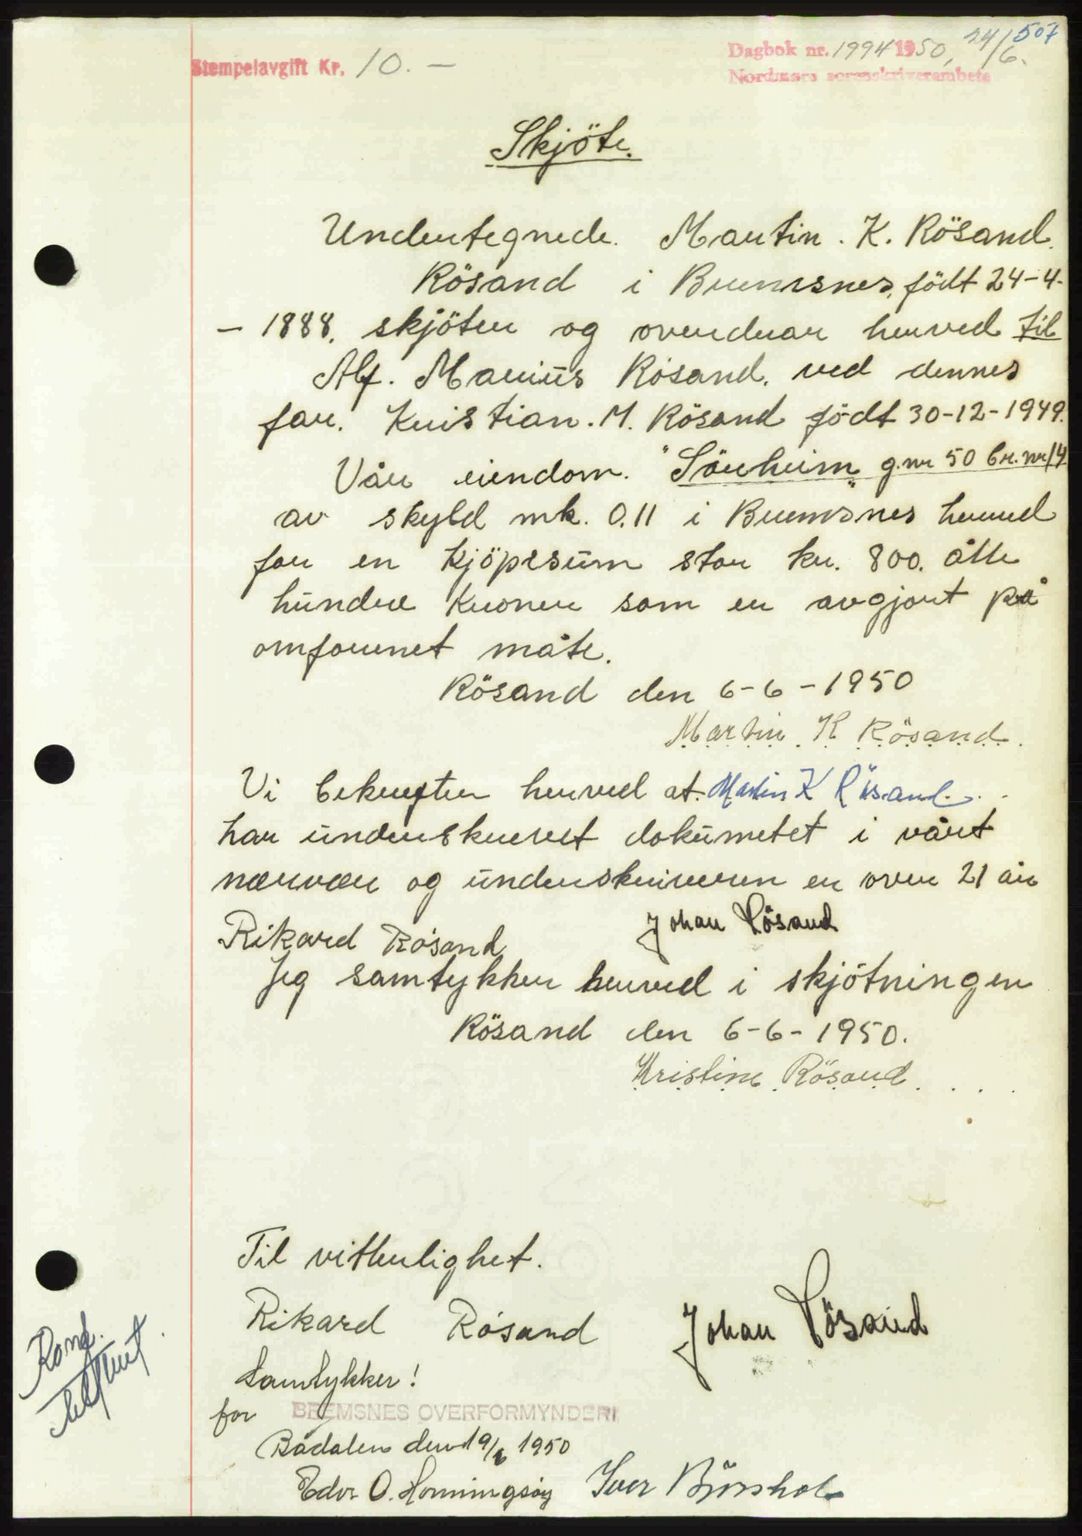 507
Stempelavgift Kr. 10. —
Dagbok nr. 1994 1950, 24/6.
Nordmøre sorenskriverembete
Skjöte.
Undertegnede. Martin. K. Rösand.
Rösand i Bremsnes, födt 24-4-
- 1888. skjöter og overdrar herved til
Alf. Marius Rösand. ved dennes
far. Kristian. M. Rösand födt 30-12-1949.
Vår eiendom. "Sörheim" g.nr 50 br.nr 14
av skyld mk. 0.11 i Bremsnes herred
for en kjöpesum stor kr. 800. åtte
hundre kroner som er avgjort på
omforenet måte.
Rösand den 6-6-1950
Martin K Rösand.
Vi bekrefter herved at Martin K Rösand
har underskrevet dokumetet i vårt
nærvær og underskriveren er over 21 år
Rikard Rösand Johan Rösand
Jeg samtykker herved i skjötningen
Rösand den 6-6-1950.
Kristine Rösand
Til vitterlighet.
Rikard Rösand Johan Rösand
Rand.
Samtykker!
for BREMSNES OVERFORMYNDERI
Bådalen den 19/6 1950
Edv. O. Honningsöy Iver Björshol